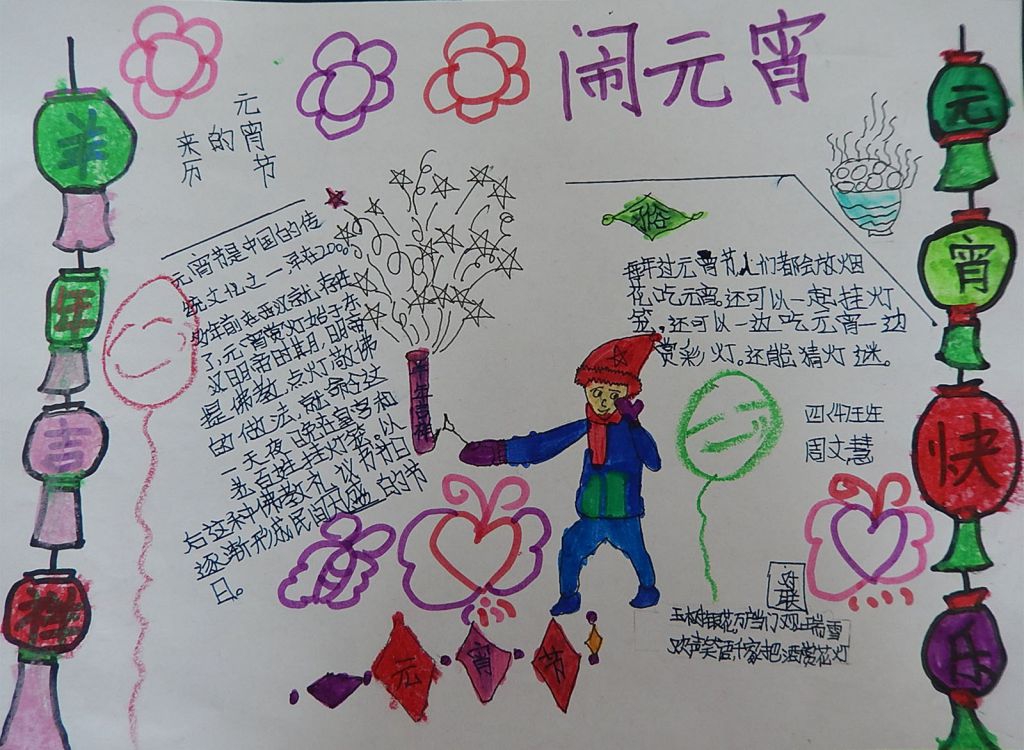 闹元宵
元宵节
的
来历
羊
年
吉
祥
元宵节是中国的传
统文化之一，早在2000
多年前在西汉就存在
了，元宵赏灯始于东
汉明帝时期，明帝
提佛教，
点灯敬佛
的做法，就命令这
一天夜晚在皇宫和
挂灯笼。以
后这种佛教礼仪节日
逐渐形成民间大盛的节
日。
习俗
每年过元宵节人们都会放烟
花，吃元宵。还可以一起挂灯
笼，还可以一边吃元宵一边
赏彩灯。还能猜灯谜。
周文慧
元
宵
快
乐
对联
玉树银花万当门观上瑞雪
欢声笑语千家把酒赏花灯
元
宵
节